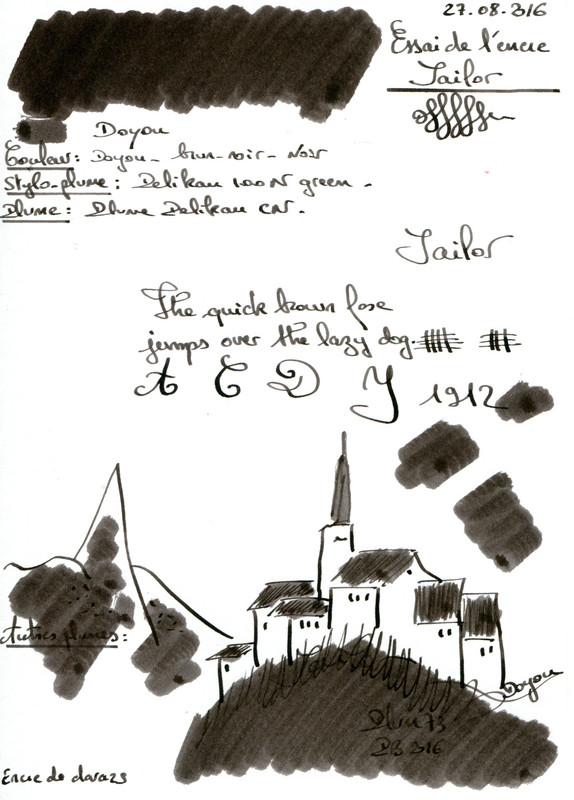 27.08.2016
Essai de l'encre
Sailor
Doyou
Couleur: Doyou - brun-noir - Noir
Stylo-plume: Pelikan 100 N green.
Plume: Plume Pelikan CN.
Sailor
The quick brown foxe
jumps over the lazy dog.
A C D Y 1912
Autres plumes:
Doyou
Encre de